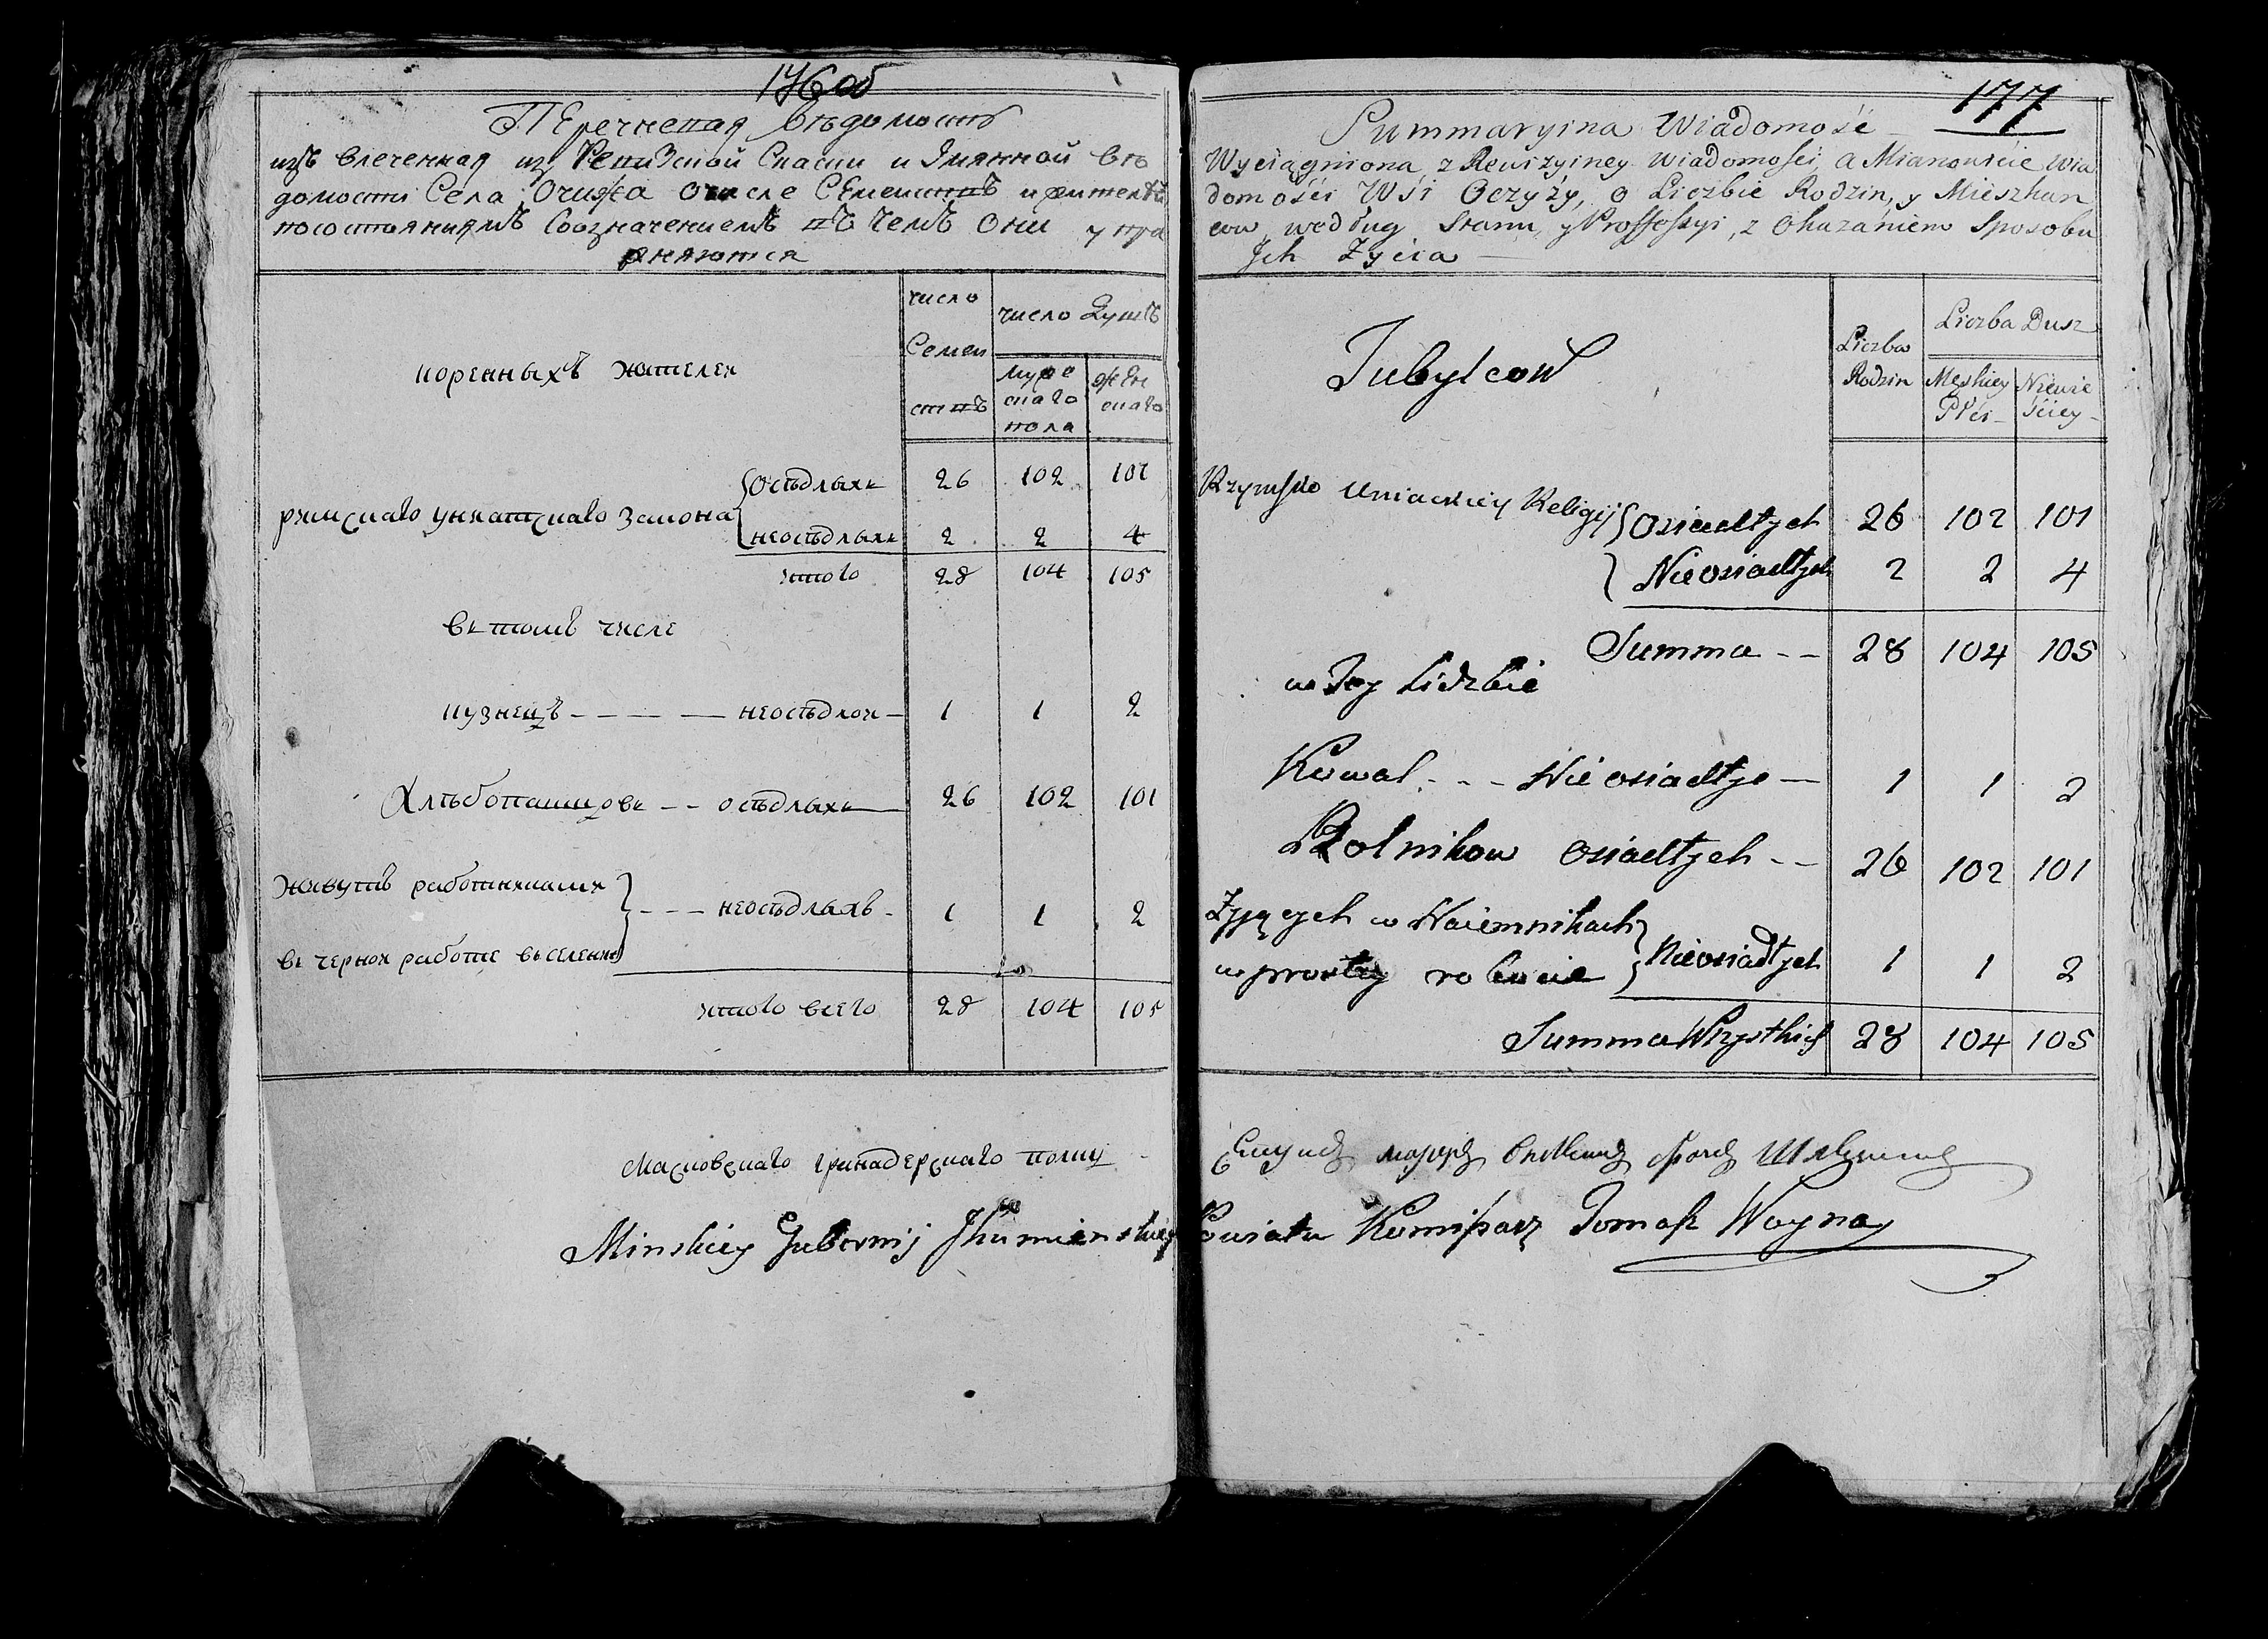 176 об
Перечневая Вѣдомость
изъ влеченная из Ревизской Скаски и Имянной вѣ
домости Села Очижа очисле Семействъ ижителей
посостояниямъ Соозначениемъ въ чемъ они упра
жняются
коренныхъ жителей
число Семей ствъ
число Душъ
муже скаго пола
жен скаго
римскаго униатскаго закона
осѣдлыхъ 26 102 101
неосѣдлыхъ 2 2 4
итого 28 104 105
въ томъ числе
кузнецъ - - - - неосѣдлой - 1 1 2
Хлѣбопашцовъ - - осѣдлыхъ 26 102 101
живутъ работниками
въ черной работе вселении
- - - неосѣдлыхъ - 1 1 2
итого всего 28 104 105
Московскаго гринадерскаго полку
177
Summaryina Wiadomość
Wyciągniona z Rewizyiney wiadomości, a Mianowicie Wia
domości Wsi Oczyży, o Liczbie Rodzin, y Mieszkan
cow według Stanu, y Proffessyi, z Okazaniem Sposobu
Jch Życia
Tubylcow
Liczba Rodzin
Liczba Dusz
Męskiey Płci
Niewie ściey
Rzymsko Uniackiey Religij
Osiadłych 26 102 101
Nieosiadłych 2 2 4
Summa - - 28 104 105
w Tey Liczbie
Kowal - - - Nie osiadłych - 1 1 2
Rolnikow osiadłych - - 26 102 101
Żyjących w Naiemnikach
w prostey robocie
Nieosiadłych 1 1 2
Summa Wszystkich 28 104 105
Секунд маіоръ
Minskiey Gubernij Jhumenskiey Powiatu Komissarz Tomasz Woyna